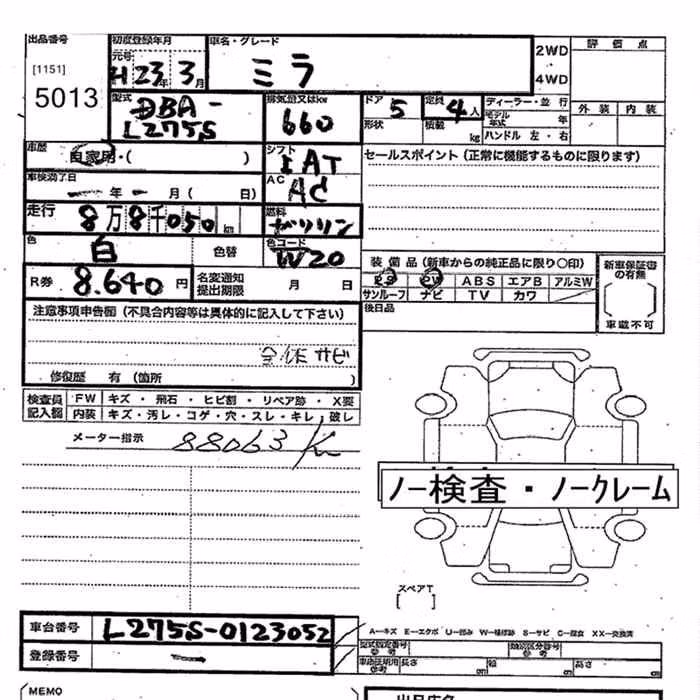 出品番号 初度登録年月 車名・グレード 2WD 評価点
[1151] 元号 H 23年 3月 ミラ 4WD
5013 型式 DBA-L275S 排気量又はkw 660 ドア 5 定員 4人 ディーラー・並行 外装 内装
形状 積載 kg モデル年式 年
ハンドル 左・右
車歴 自家用・( ) シフト IAT セールスポイント(正常に機能するものに限ります)
車検満了日 ー年ー月(日) AC AC
走行 8万8千050km 燃料 ガソリン
色 白 色替 色コード W20 装備品(新車からの純正品に限り○印) 新車保証書の有無
R券 8.640円 名変通知提出期限 月 日 PS PW ABS エアB アルミW
サンルーフ ナビ TV カワ
注意事項申告欄(不具合内容等は具体的に記入して下さい) 後日品 車載不可
全体サビ
修復歴 有(箇所 )
検査員記入欄 FW キズ・飛石・ヒビ割・リペア跡・X要
内装 キズ・汚レ・コゲ・穴・スレ・キレ・破レ
メーター指示 88063 Km
ノー検査・ノークレーム
スペアT
[ ]
車台番号 L275S-0123052 A—キズ E—エクボ U—凹み W—補修跡 S—サビ C—腐食 XX—交換済
登録番号 ー 型式指定番号 参考 類別区分番号 参考
車庫証明用 参考 長さ cm 幅 cm 高さ cm
MEMO 出品店名